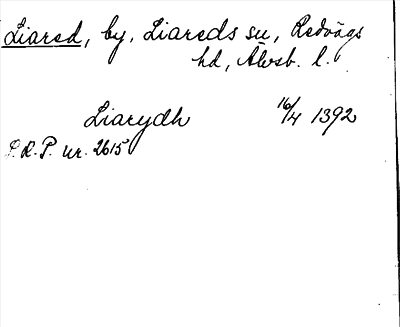 Liared, by, Liareds sn, Redvägs
hd, Älvsb. l.
Liarydh 16/4 1392
S.R.P. nr. 2615